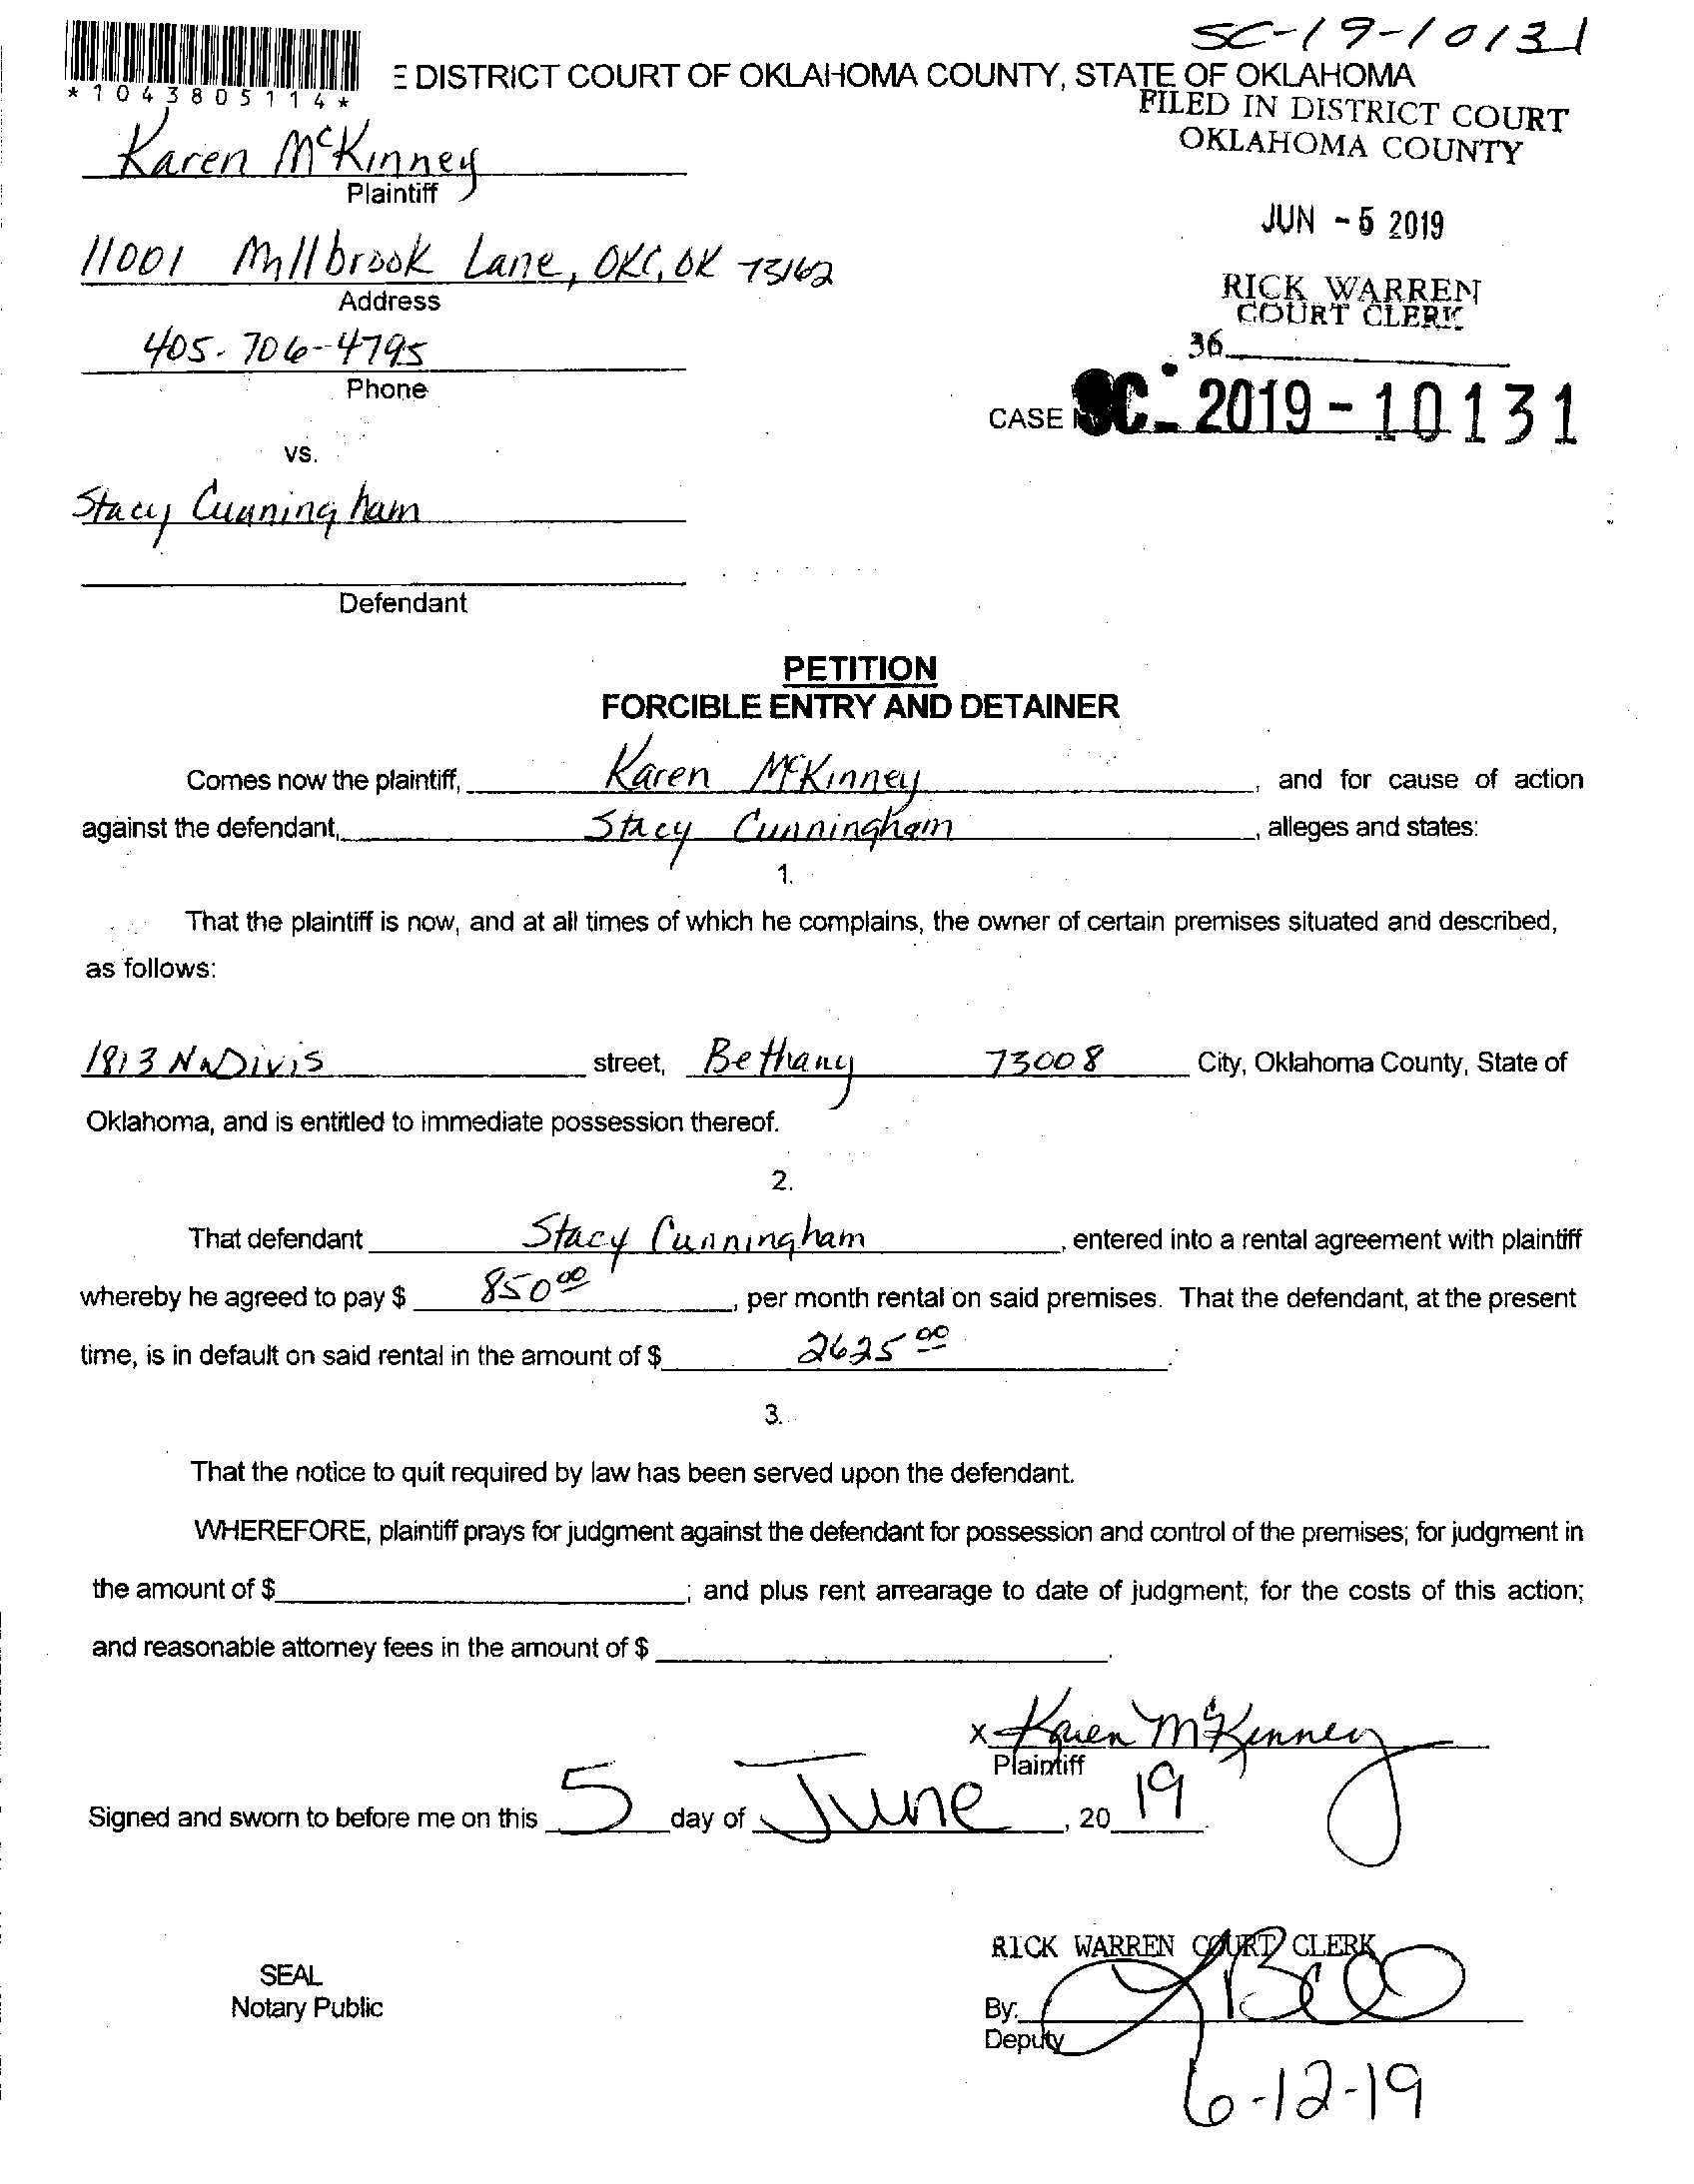 SC-19-10131
*1043805114*
E DISTRICT COURT OF OKLAHOMA COUNTY, STATE OF OKLAHOMA
FILED IN DISTRICT COURT
OKLAHOMA COUNTY
Karen McKinney
Plaintiff
JUN - 5 2019
11001 Millbrook Lane, OKC, OK 73162
Address
RICK WARREN
COURT CLERK
405-706-4795
36
Phone
CASE SC- 2019-10131
vs.
Stacy Cunningham
Defendant
PETITION
FORCIBLE ENTRY AND DETAINER
Comes now the plaintiff, Karen McKinney, and for cause of action
against the defendant, Stacy Cunningham, alleges and states:
1.
That the plaintiff is now, and at all times of which he complains, the owner of certain premises situated and described,
as follows:
1813 N Divis street, Bethany 73008 City, Oklahoma County, State of
Oklahoma, and is entitled to immediate possession thereof.
2.
That defendant Stacy Cunningham, entered into a rental agreement with plaintiff
whereby he agreed to pay $ 850 00, per month rental on said premises. That the defendant, at the present
time, is in default on said rental in the amount of $ 2625 00.
3.
That the notice to quit required by law has been served upon the defendant.
WHEREFORE, plaintiff prays for judgment against the defendant for possession and control of the premises; for judgment in
the amount of $ ; and plus rent arrearage to date of judgment; for the costs of this action;
and reasonable attorney fees in the amount of $ .
x Karen McKinney
Plaintiff
Signed and sworn to before me on this 5 day of June, 20 19.
RICK WARREN COURT CLERK
SEAL
Notary Public
By:
Deputy
6-12-19